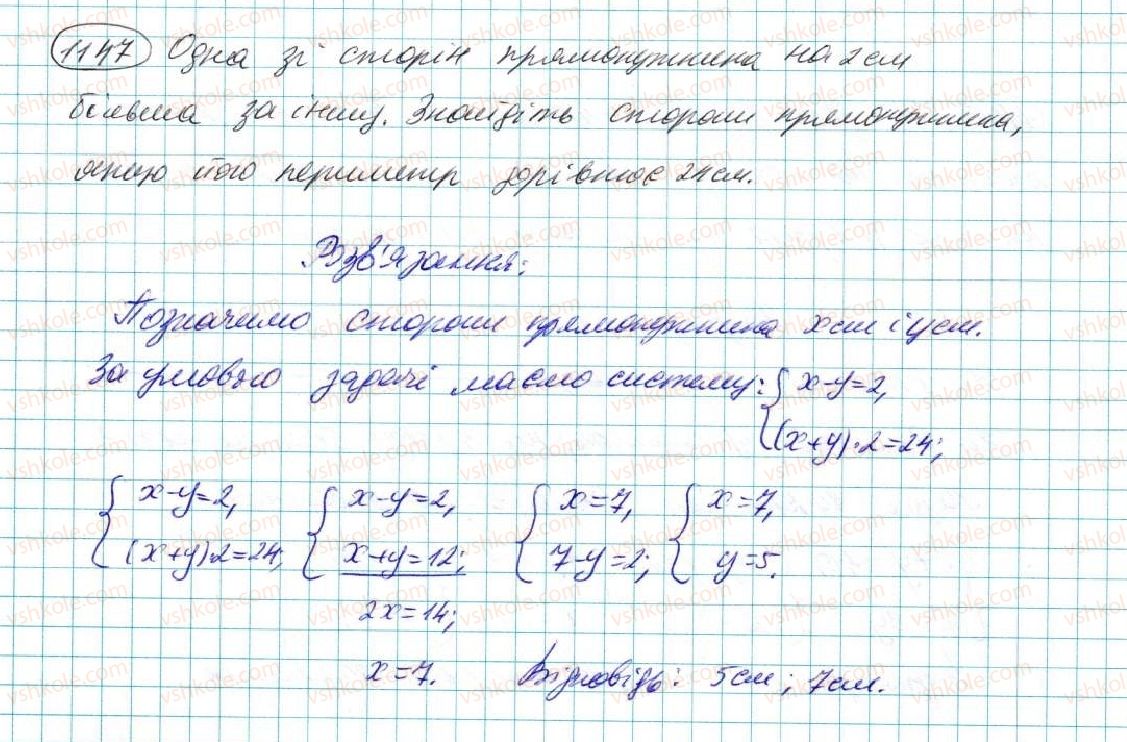 1147 Одна зі сторін прямокутника на 2 см
більша за іншу. Знайдіть сторони прямокутника,
якщо його периметр дорівнює 24 см.
Розв'язання:
Позначимо сторони прямокутника x см і y см.
За умовою задачі маємо систему: { x-y=2,
(x+y)·2=24;
{ x-y=2, { x-y=2, { x=7, { x=7,
(x+y)·2=24; x+y=12; 7-y=2; y=5.
2x=14;
x=7. Відповідь: 5 см; 7 см.
vshkole.com